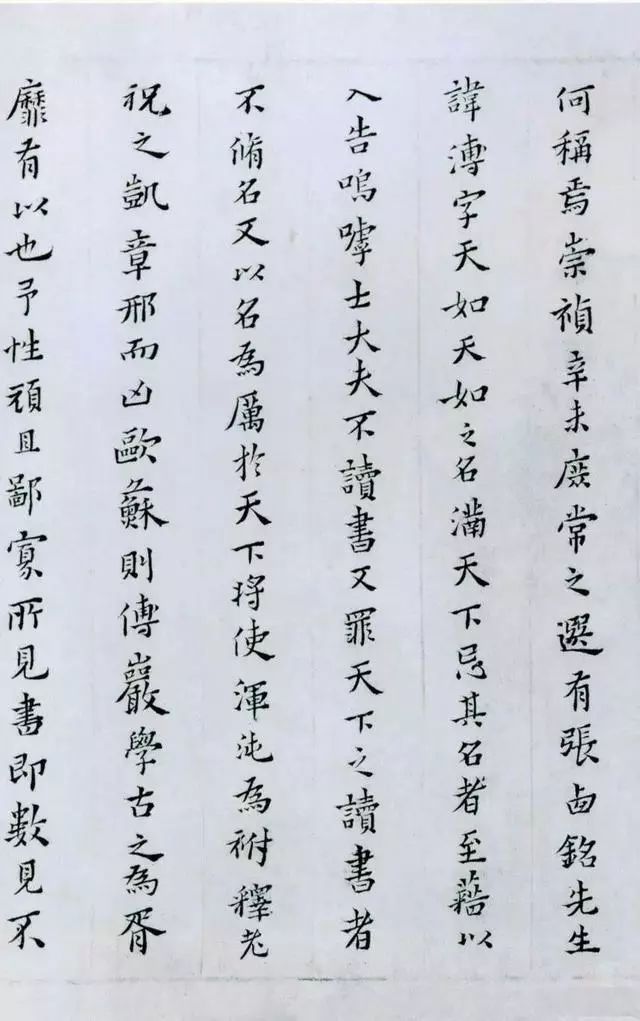 何稱焉崇禎辛未庶常之選有張卤銘先生
諱溥字天如天如之名滿天下忌其名者至藉以
入告嗚嘑士大夫不讀書又罪天下之讀書者
不脩名又以名為厲於天下將使渾沌為祔釋老
祝之凱章邢而凶歐蘇則傅巖學古之為胥
靡有以也予性頑且鄙寡所見書即數見不